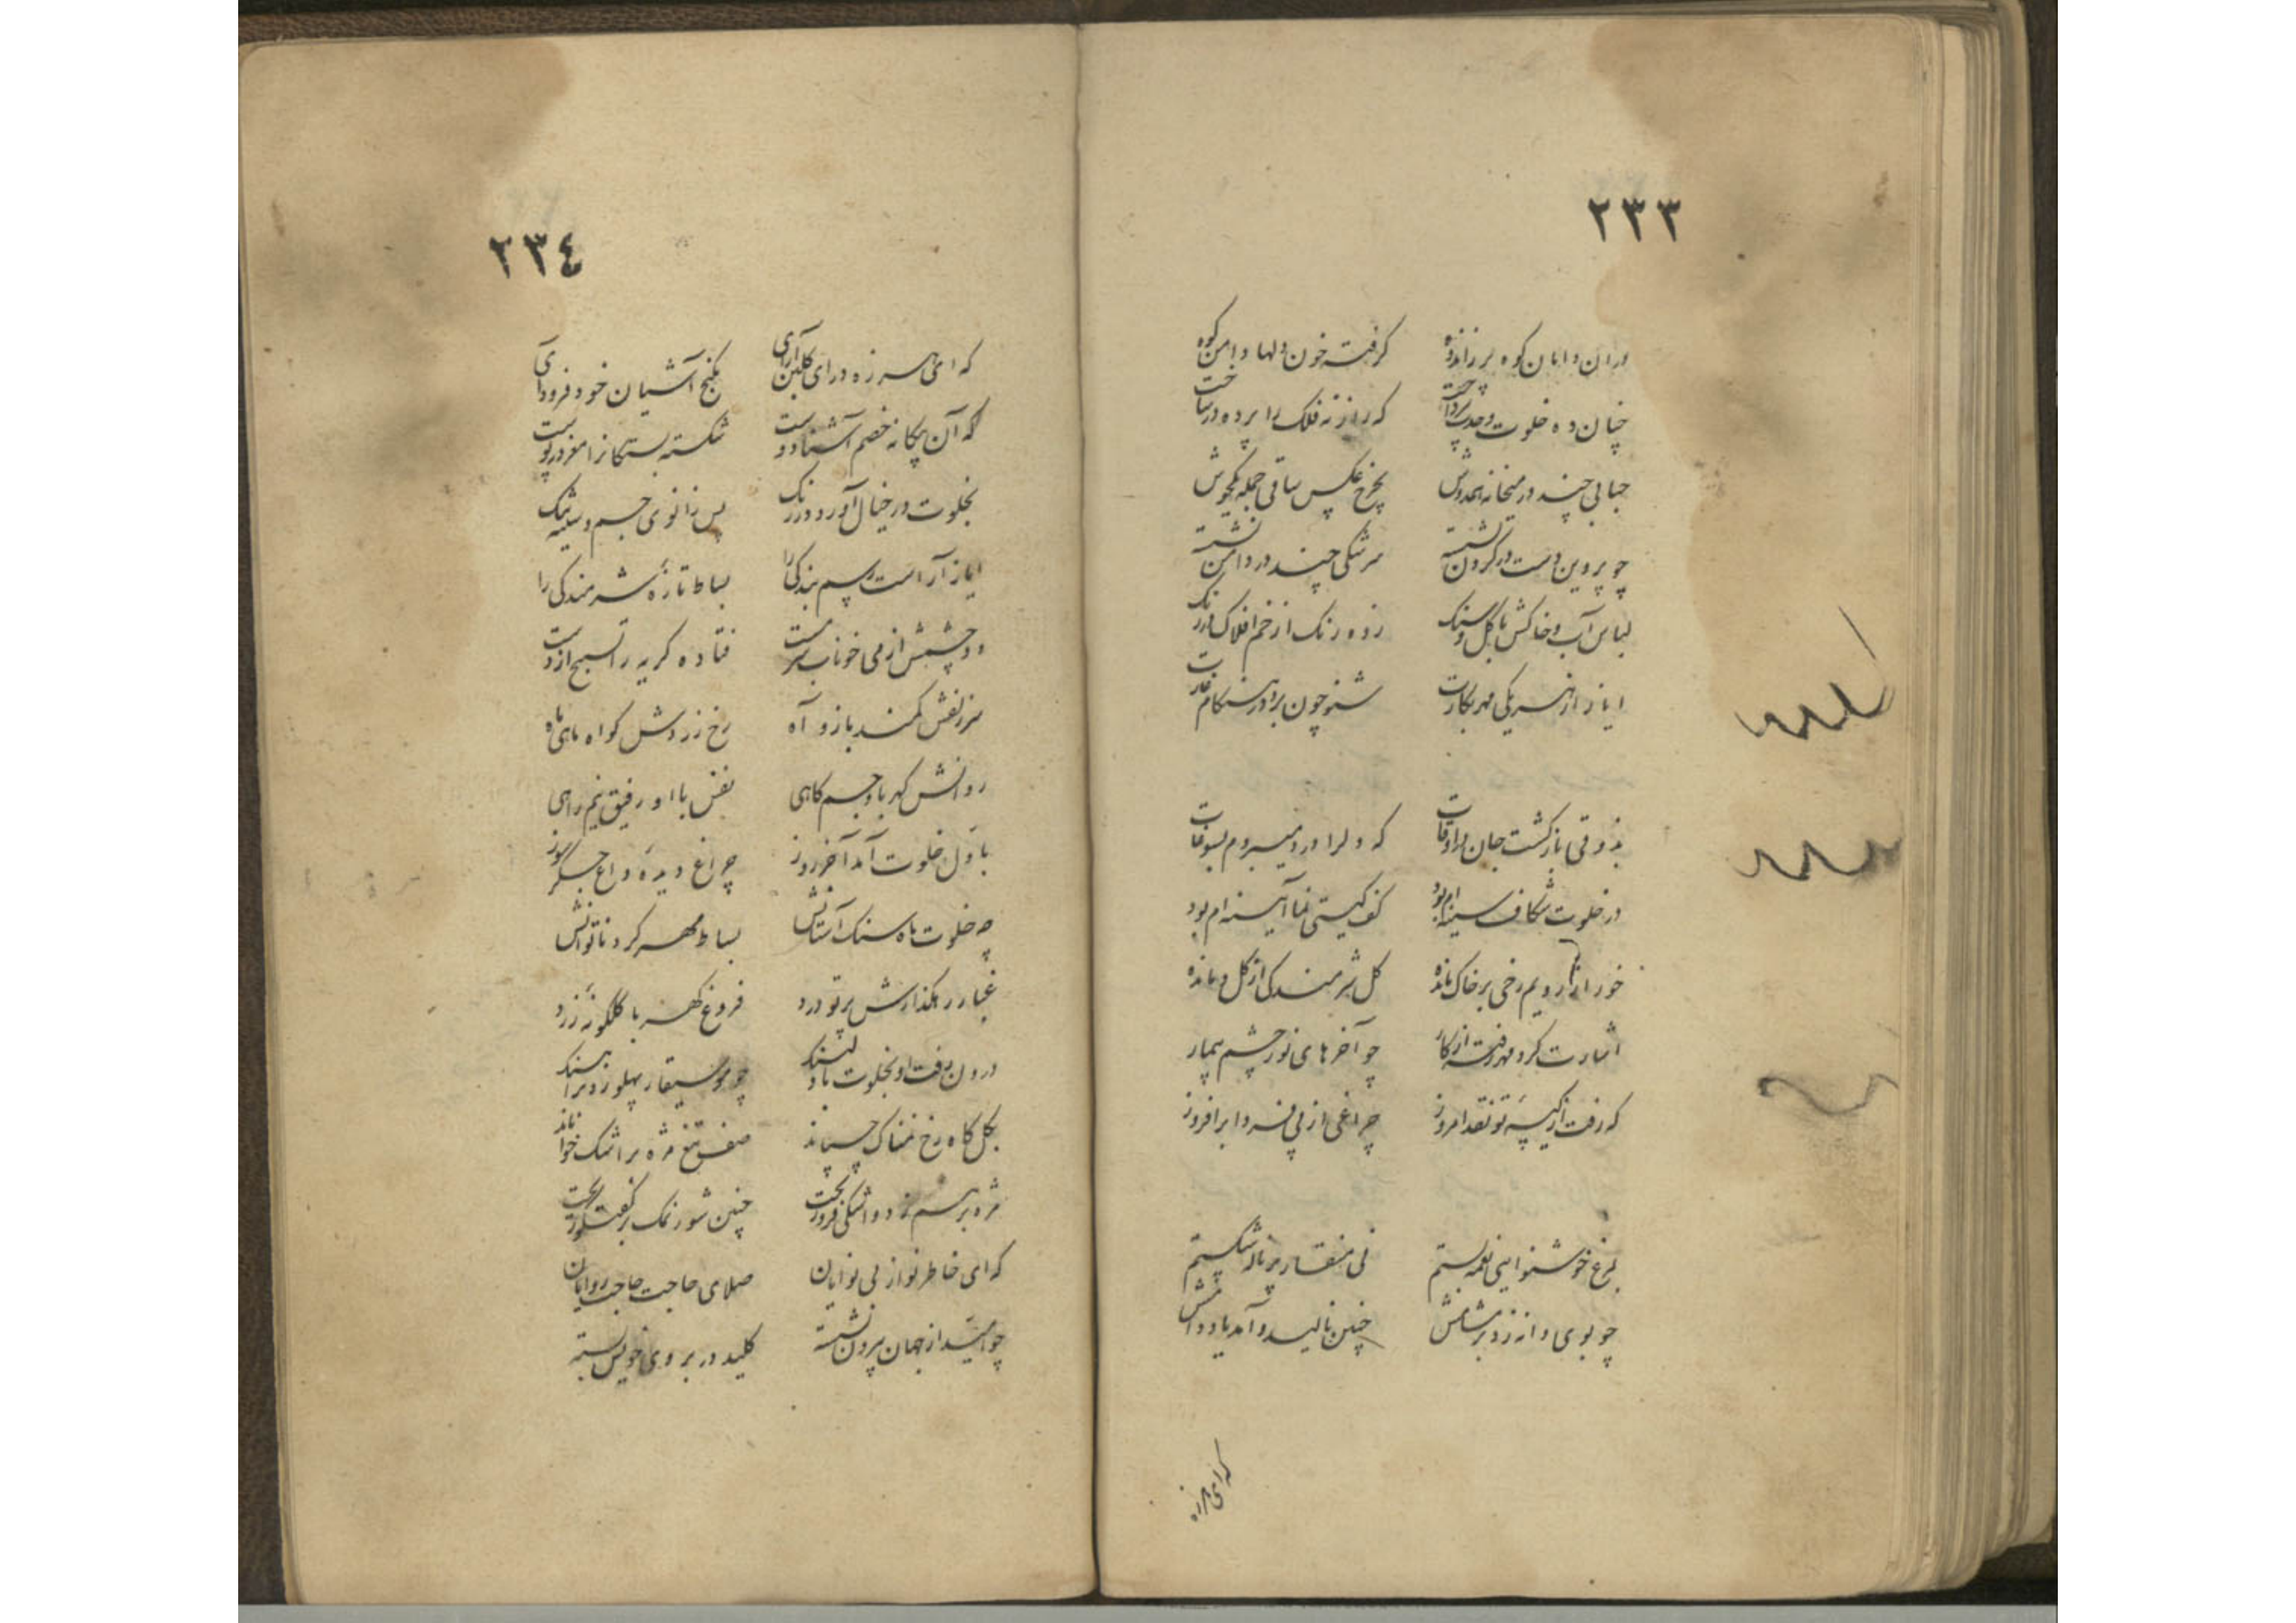 ٢٣٣
دران دامان کوه پر ز اندوه گرفته خون دلها دامن کوه
چنان ده خلوت وحدت بپرداخت که راز نه فلک را پرده در ساخت
حبابی چند در میخانه همدوش بچرخ عکس ساقی جمله یکجوش
چو پروین دست در گردن نشسته سرشکی چند در دامن نشسته
لباس آب و خاکش با گل و سنگ زده رنگ از خم افلاک در رنگ
ایاز از هر یکی مهر بکارت شنو چون برد در هنگام غارت
بذوقی بازگشت جان در اوقات که دلرا درد میبردم بسوغات
در خلوت شکاف سینه ام بود کف گیتی نما آیینه ام بود
خور از رویم رخی بر خاک مانده گل شرمندگی از گل دمانده
اشارت کرد مهر رفته از کار چو آخرهای نور چشم بیمار
که رفت از کیسه تو نقد امروز چراغی از پی فردا برافروز
بمرغ خوشنوایی نغمه بستم نی منقار پر ناله شکستم
چو بوی دانه زد بر مشامش چنین نالید و آمد یاد دامش
که ای هرزه
٢٣٤
که ای هرزه درای گلبن آرای بکنج آشیان خود فرود آی
که آن بیگانه خصم آشنا دوست شکسته بستگانرا مغز در پوست
بخلوت در خیال آورد در رنگ پس زانوی جسم و سینه تنگ
ایاز آراست رسم بندگی را بساط تازهٔ شرمندگی را
دو چشمش از می خوناب سرمست فتاده گریه را تسبیح از دست
سر زلفش کمند بازو آه رخ زردش گواه ماهی ماه
روانش کهربا و جسم کاهی نفس با او رفیق نیم راهی
باول خلوت آمد آخر روز چراغ دیده داغ جگر سوز
چه خلوت ماه سنگ آستانش بساط مهر گرد ناتوانش
غبار رهگذارش پرتو درد فروغ کهنه با گلگونهٔ زرد
درون رفت او بخلوت با دل تنگ چو موسیقار پهلو زد بر آهنگ
بگل گاه رخ نمناک چسپاند صف تیغ مژه بر اشک خواباند
مژه برهم زد و اشکی فرو ریخت چنین شور نمک بر گفتگو ریخت
که ای خاطر نواز بی نوایان صلای حاجت حاجت روایان
چو امید از جهان بیرون نشسته کلید در بروی خویش بسته